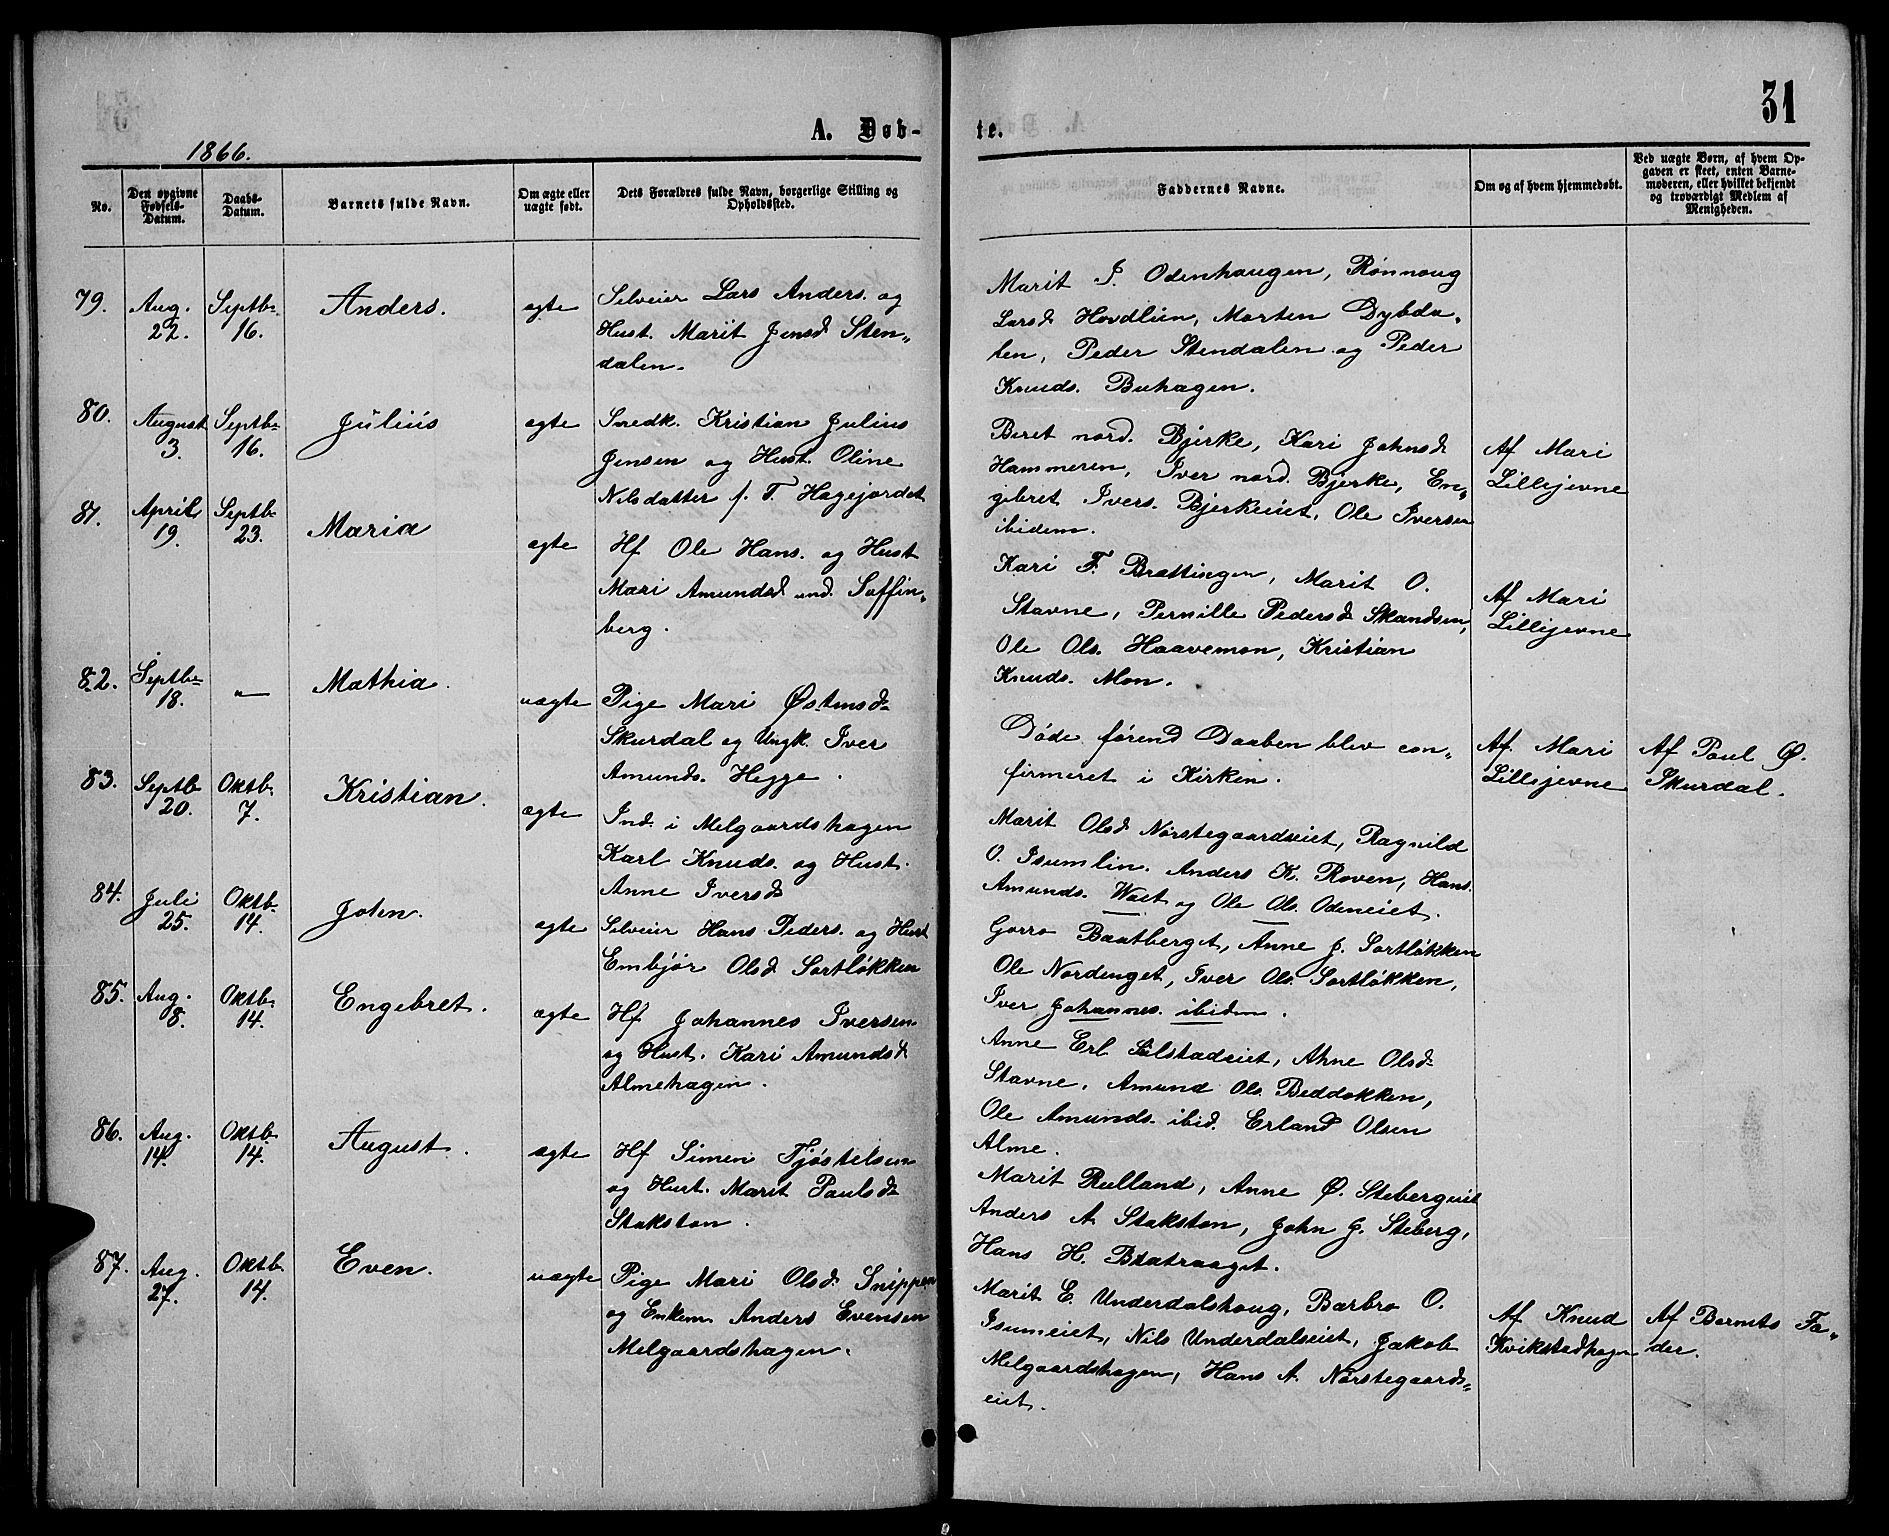 31
A. Døb-
te.
1866.
No.
Den opgivne
Fødsels-
Datum.
Daabs-
Datum.
Barnets fulde Navn.
Om ægte eller
uægte født.
Dets Forældres fulde Navn, borgerlige Stilling og
Opholdssted.
Faddernes Navne.
Om og af hvem hjemmedøbt.
Ved uægte Børn, af hvem Op-
gaven er skeet, enten Barne-
moderen, eller hvilket bekjendt
og troværdigt Medlem af
Menigheden.
79.
Aug.
22.
Septbr
16.
Anders.
ægte
Selveier Lars Anders. og
Hust. Marit Jensd Sten„
dalen.
Marit J. Odenhaugen, Rønnoug
Larsd Hovdlien, Morten Dybda„
len, Peder Stendalen og Peder
Knuds. Buhagen.
80.
August
3.
Septbr
16.
Julius
ægte
Snedk. Kristian Julius
Jensen og Hust. Oline
Nilsdatter f. T. Hagejordet
Beret nord. Bjerke, Kari Johnsd
Hammeren, Iver nord. Bjerke, En„
gebret Ivers. Bjerkeeiet, Ole Iversen
ibidem.
Af Mari
Lillejevne
81.
April
19.
Septb.
23.
Maria
ægte
Hf Ole Hans. og Hust
Mari Amundsd und. Soffin„
berg.
Kari F. Brattingen, Marit O.
Stavne, Pernille Pedersd Skandsen,
Ole Ols. Haavemon, Kristian
Knuds. Mon.
Af Mari
Lillejevne
82.
Septbr
18.
„
Mathia.
uægte
Pige Mari Østensd.
Skurdal og Ungk. Iver
Amunds. Hegge.
Døde førend Daaben blev con„
firmeret i Kirken.
Af Mari
Lillejevne
Af Paul Ø.
Skurdal.
83.
Septb
20.
Oktb.
7.
Kristian.
ægte
Ind. i Melgaardshagen
Karl Knuds. og Hust.
Anne Iversd
Marit Olsd Nørstegaardseiet, Ragnild
O. Isumlien. Anders K. Roven, Hans
Amunds. Wost og Ole Ols. Odeneiet.
84.
Juli
25.
Oktb.
14.
John.
ægte
Selveier Hans Peders. og Hust
Embjør Olsd Sortløkken
Gorro Baatberget, Anne J. Sortløkken
Ole Nordenget, Iver Ols. Sortløkken,
Iver Johannes. ibidem.
85.
Aug.
8.
Oktb.
14.
Engebret.
ægte
Hf Johannes Iversen
og Hust. Kari Amundsd
Almehagen.
Anne Erl. Selstadeiet, Anne Olsd.
Stavne, Amund Ols. Beddokken,
Ole Amunds. ibid. Erland Olsen
Alme.
86.
Aug.
14.
Oktb.
14.
August.
ægte
Hf Simen Tjøstelsen
og Hust. Marit Paulsd.
Stakston.
Marit Rulland, Anne Ø. Stebergeiet
Anders A. Stakston, John J. Steberg,
Hans H. Bratraaget.
87.
Aug.
27.
Oktb.
14.
Even.
uægte
Pige Mari Olsd. Snippen
og Enkem. Anders Evensen
Melgaardshagen.
Marit E. Underdalshoug, Barbro O.
Isumeiet, Nils Underdalseiet, Jakob
Melgaardshagen, Hans A. Nørstegaards„
eiet.
Af Knud
Kvikstadhagen
Af Barnets Fa„
der.